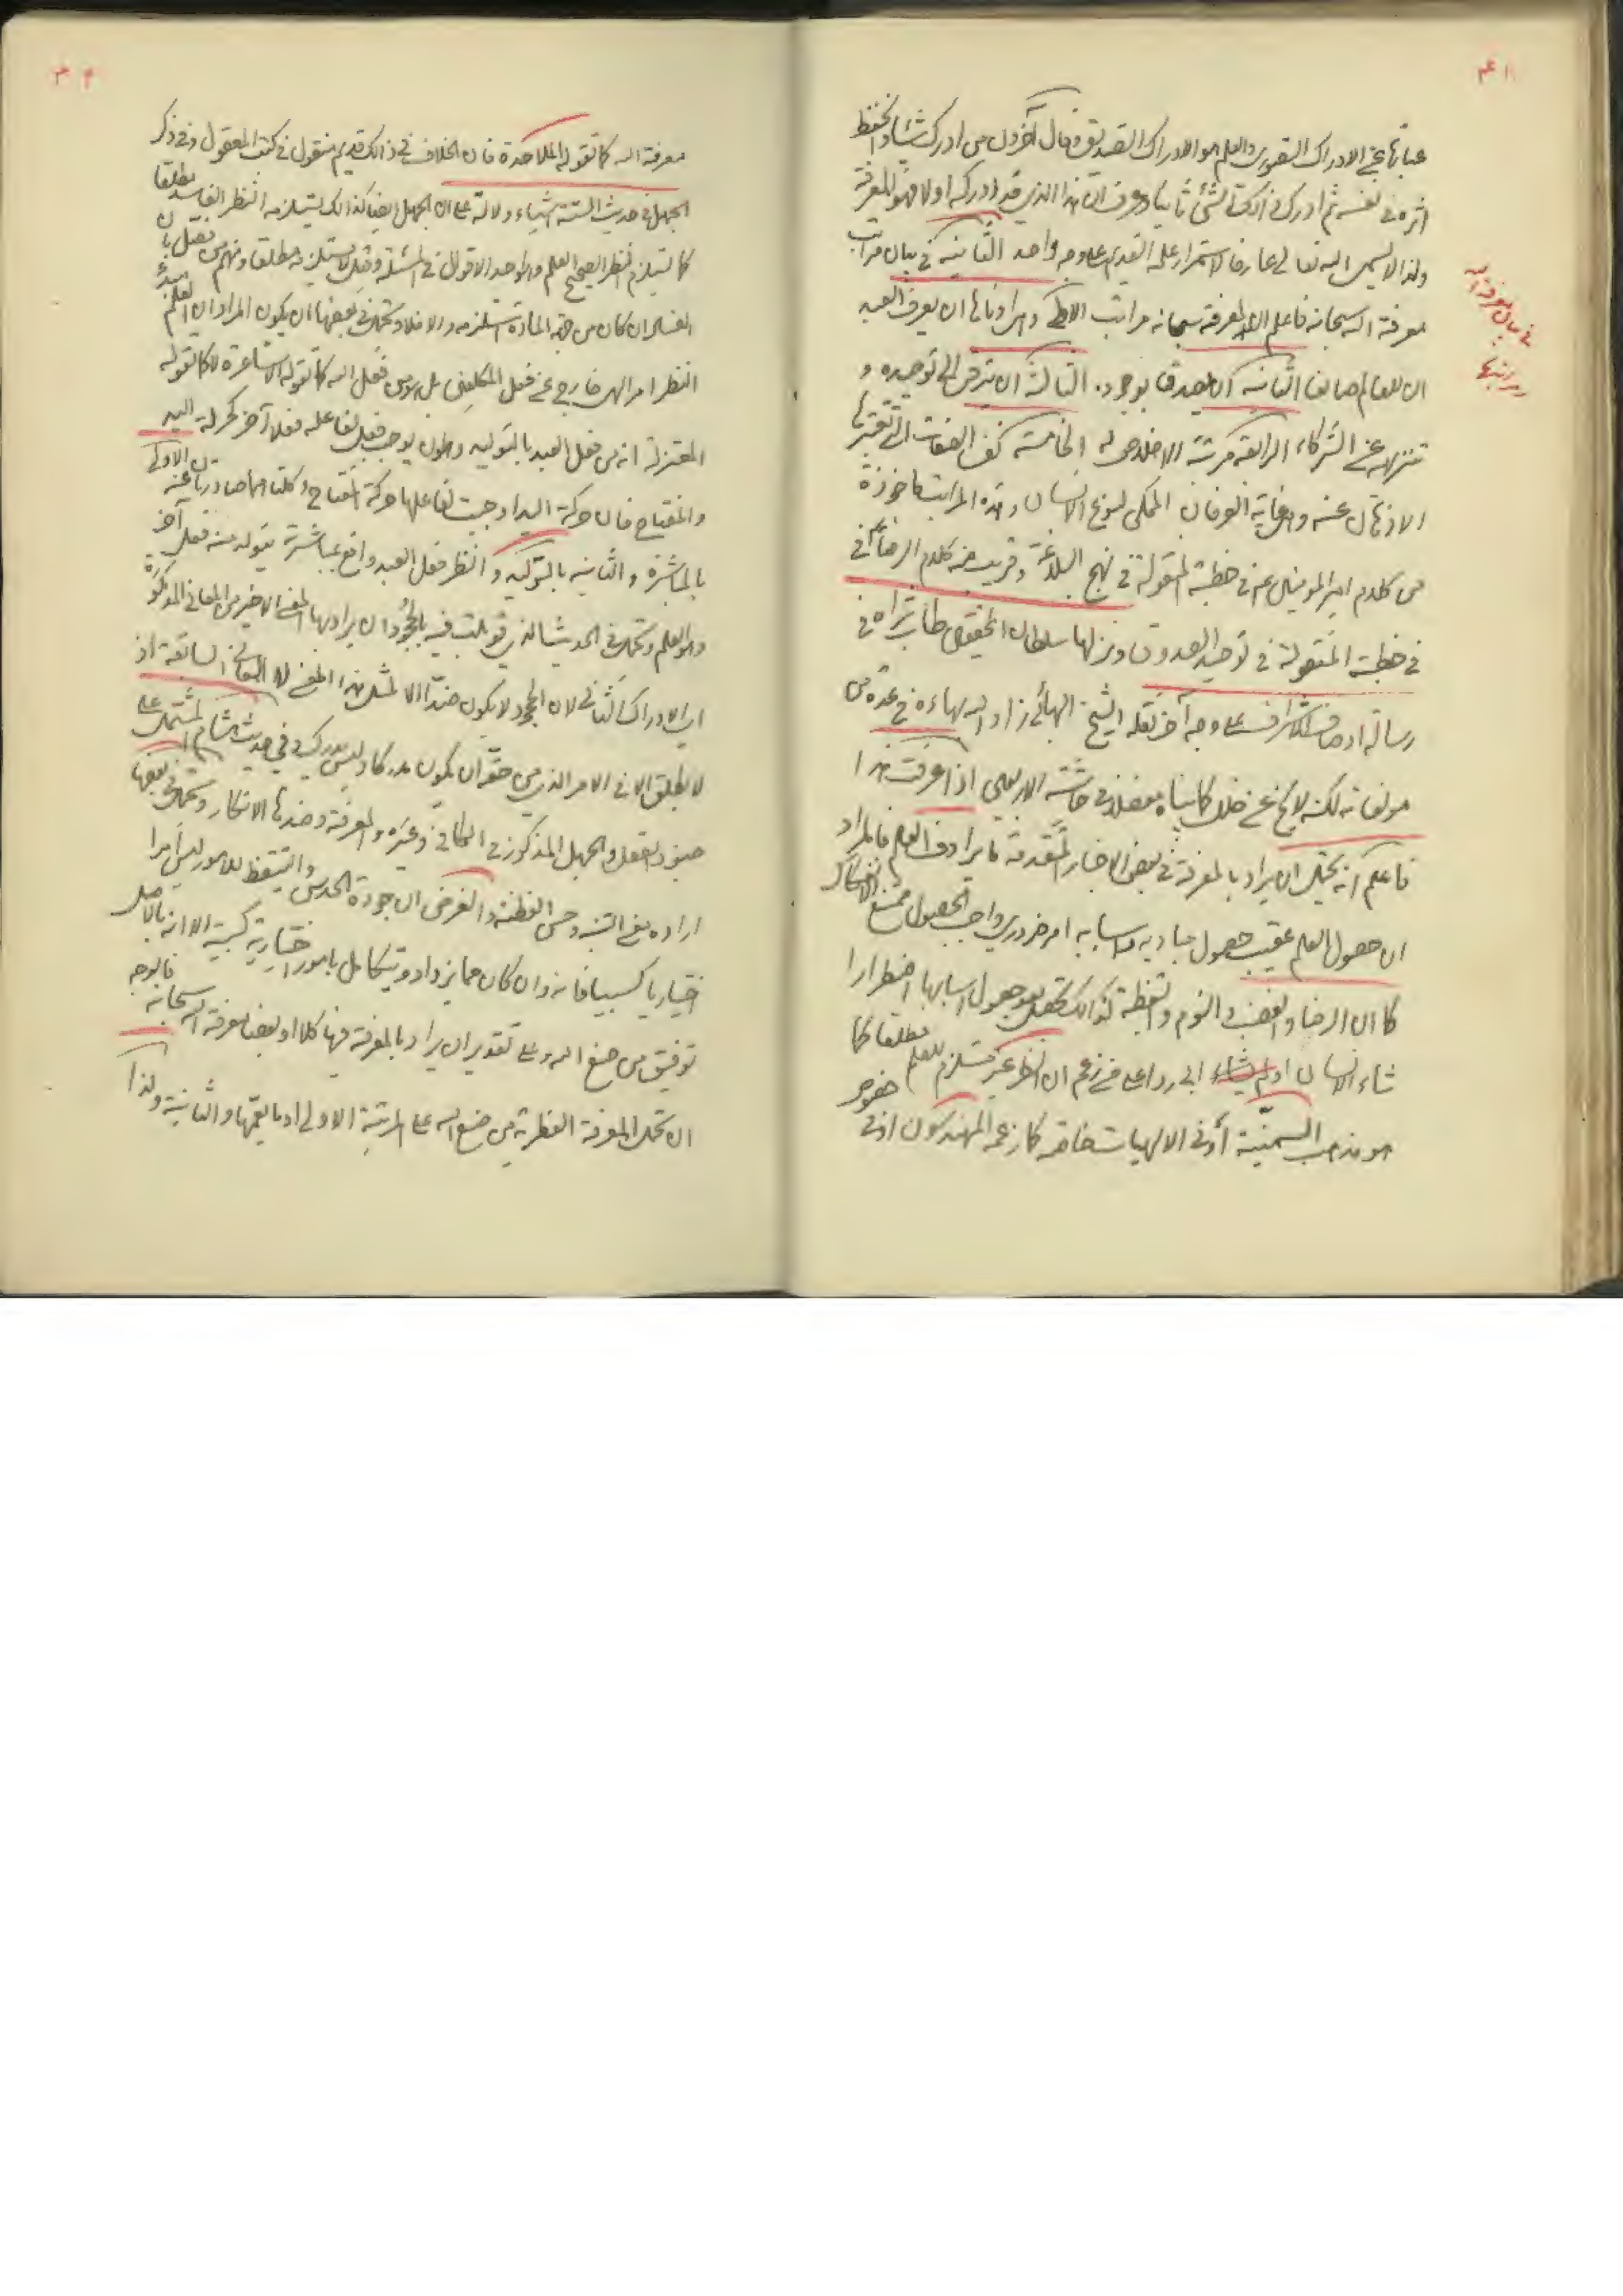 ٤١
عبارتها عن الادراك التصوري والعلم هو الادراك التصديقي وقال آخرون من ادرك شيئا وانحفظ
اثره في نفسه ثم ادرك ذلك الشئ ثانيا وعرف ان هذا الذي قد ادركه اولا فهو المعرفة
ولذا لا يسمى الله تعالى عارفا لاستمرار علمه القديم على وجه واحد الثانية في بيان مراتب
معرفة الله سبحانه فاعلم ان لمعرفته سبحانه مراتب الاولى وهي ادناها ان يعرف العبد
ان للعالم صانعا الثانية ان يصدق بوجوده الثالثة ان يترقى الى توحيده و
تنزيهه عن الشركاء الرابعة مرتبة الاخلاص له الخامسة نفي الصفات التي تعتبرها
الاذهان عنه وهي غاية العرفان الممكن لنوع الانسان وهذه المراتب ماخوذة
من كلام امير المؤمنين ع في خطبة المنقولة في نهج البلاغة وقريب منه كلام الرضا ع في
في خطبة المنقولة في توحيد الصدوق ونزلها سلطان المحققين طاب ثراه في
رسالة اوصاف الاشراف على وجه آخر نقله الشيخ البهائي زاد الله بهاءه في عدة من
مؤلفاته لكنه لا يخ عن خلل كما بيناه مفصلا في حاشية الاربعين اذا عرفت هذا
فاعلم انه يحتمل ان يراد بالمعرفة في بعض الاخبار المتقدمة ما يرادف العلم فالمراد
ان حصول العلم عقيب حصول مباديه واسبابه امر ضروري واجب الحصول ممتنع الانفكاك
كما ان الرضا والغضب والنوم واليقظة كذلك تحصل بعد حصول اسبابها اضطرارا
شاء الانسان او لم يشاء اي ردا على من زعم ان النظر غير مستلزم للعلم مطلقا كما
هو مذهب السمنية أو في الالهيات خاصة كما زعمه المهندسون او في خصوص
في بيان معرفة الله
ومراتبها
معرفة الله كما تقوله الملاحدة فان الخلاف في ذلك قديم منقول في كتب المعقول وفي ذكر
الجهل في حديث الستة اشياء دلالة على ان الجهل ايضا كذلك يستلزمه النظر الفاسد مطلقا
كما يستلزم النظر الصحيح العلم وهو احد الاقوال في المسئلة وقيل لا يستلزمه مطلقا ومنهم من فصل بان
الفساد ان كان من جهة المادة استلزمه والا فلا ويحتمل في بعضها ان يكون المراد ان العلم بعد
النظر امر الهي خارج عن فعل المكلفين بل هو من فعل الله كما تقوله الاشاعرة لا كما تقوله
المعتزلة انه من فعل العبد بالتوليد وهو ان يوجب فعل لفاعله فعلا آخر كحركة اليد
والمفتاح فان حركة اليد اوجبت لفاعلها حركة المفتاح وكلتاهما صادرتان عنه الاولى
بالمباشرة والثانية بالتوليد والنظر فعل العبد واقع بمباشرة يتولد منه فعل آخر
وهو العلم ويحتمل في الحديث الذي قوبلت فيه بالجحود ان يراد بها المعنى الاخير من المعاني المذكورة
اي الادراك الثاني لان الجحود لا يكون ضدا الا لمثل هذا المعنى لا المعاني السابقة اذ
لا يطلق الا في الامر الذي من حقه ان يكون مدركا وليس بمدرك في حديث هشام المشتمل على
جنود العقل والجهل المذكور في الكافي وغيره والمعرفة وضدها الانكار ويحتمل في بعضها
ارادة معنى التنبه وحسن الفطنة والغرض ان جودة الحدس والتيقظ للامور ليس امرا
اختياريا كسبيا فانه وان كان مما يزداد ويتكامل بامور اختيارية كسبية الا انه بالاصل
توفيق من صنع الله وعلى تقدير ان يراد بالمعرفة فيها كلا او بعضا معرفة الله سبحانه فالوجه
ان تحمل المعرفة الفطرية من صنع الله على المرتبة الاولى او ما يعمها والثانية ولذا